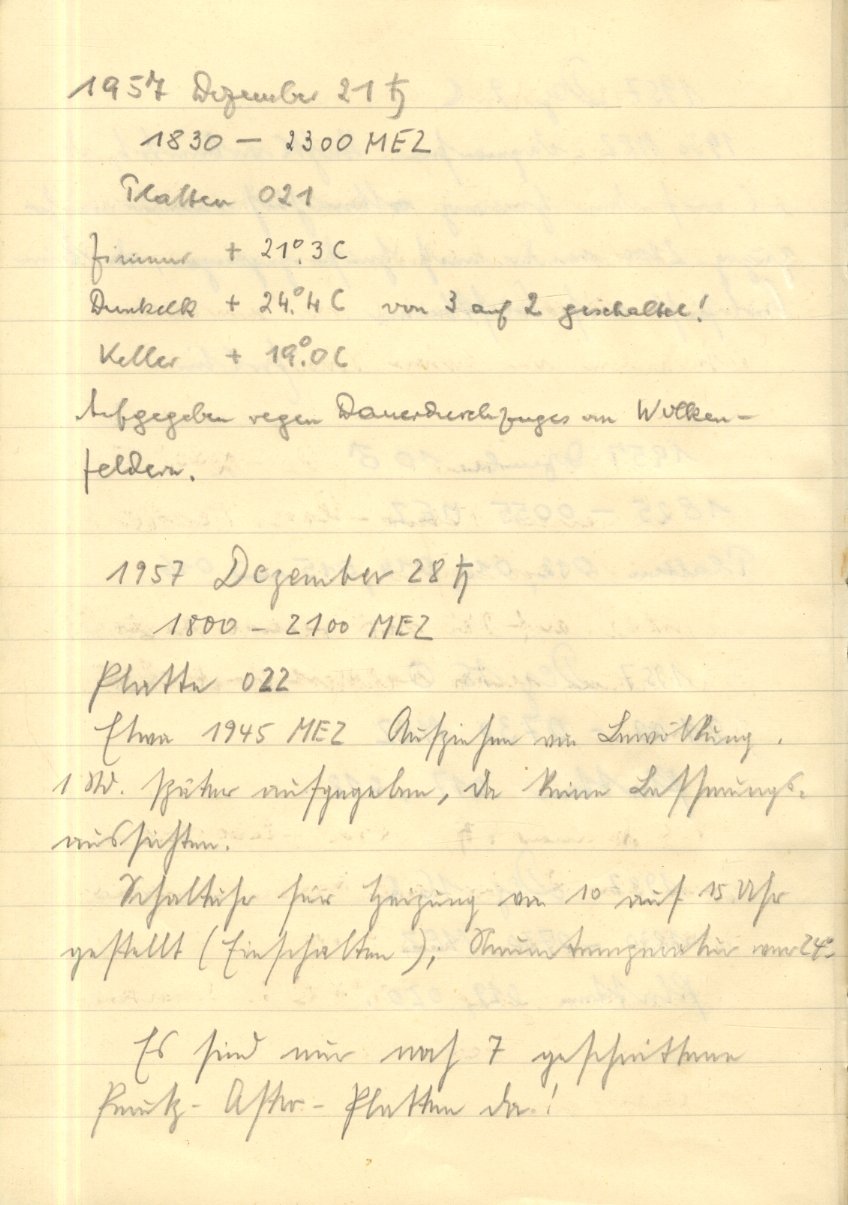 1957 Dezember 21 ♄
1830 – 2300 MEZ
Platten 021
Zimmer + 21°.3 C
Dunkelk + 24°.4 C von 3 auf 2 geschaltet!
Keller + 19°.0 C
Aufgegeben wegen Dauerdurchzuges von Wolken-
feldern.
1957 Dezember 28 ♄
1800 – 2100 MEZ
Platte 022
Etwa 1945 MEZ Aufziehen von Bewölkung.
1 Std. später aufgegeben, da keine Besserungs-
aussichten.
Schaltuhr für Heizung von 10 auf 15 Uhr
gestellt (Einschalten), Raumtemperatur war 24°.
Es sind nur noch 7 geschnittene
Perutz-Astro-Platten da!